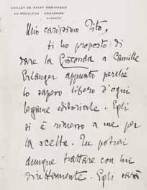 Mio carissimo Tito,
ti ho proposto di
dare la Gioconda a Camille
Erlanger appunto perché
lo sapevo libero d'ogni
legame editoriale. Egli
si è rimesso a me per
la scelta. Tu potrai
dunque trattare con lui
direttamente. Egli